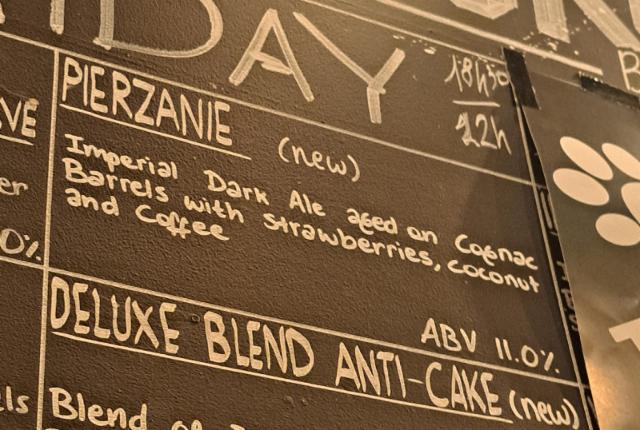 DAY
18h30
22h
VE
er
0%
PIERZANIE (new)
Imperial Dark Ale aged on Cognac
Barrels with strawberries, coconut
and Coffee
ABV 11.0%
DELUXE BLEND ANTI-CAKE (new)
els
Blend